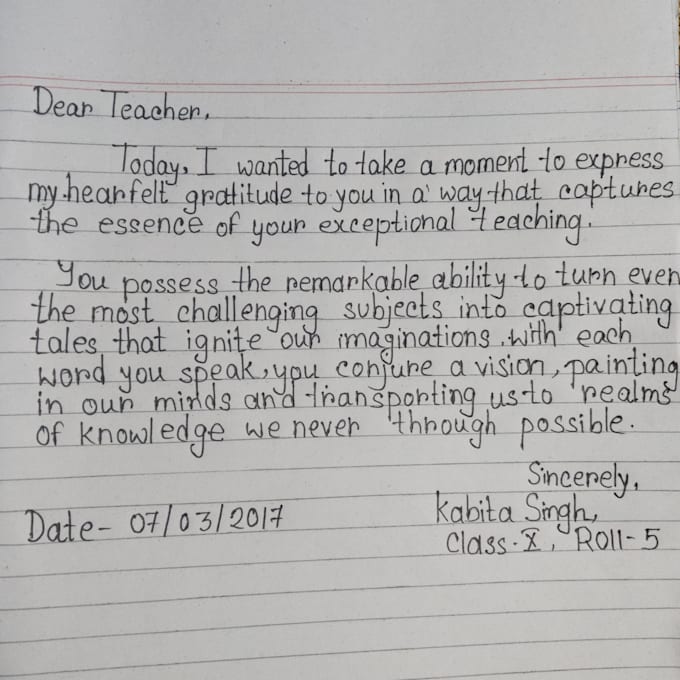 Dear Teacher,
Today, I wanted to take a moment to express
my hearfelt gratitude to you in a way that captures
the essence of your exceptional teaching.
You possess the remarkable ability to turn even
the most challenging subjects into captivating
tales that ignite our imaginations. with each
word you speak, you conjure a vision, painting
in our minds and transporting us to realms
of knowledge we never through possible.
Sincerely,
Date- 07/03/2017
Kabita Singh,
Class-X, Roll-5